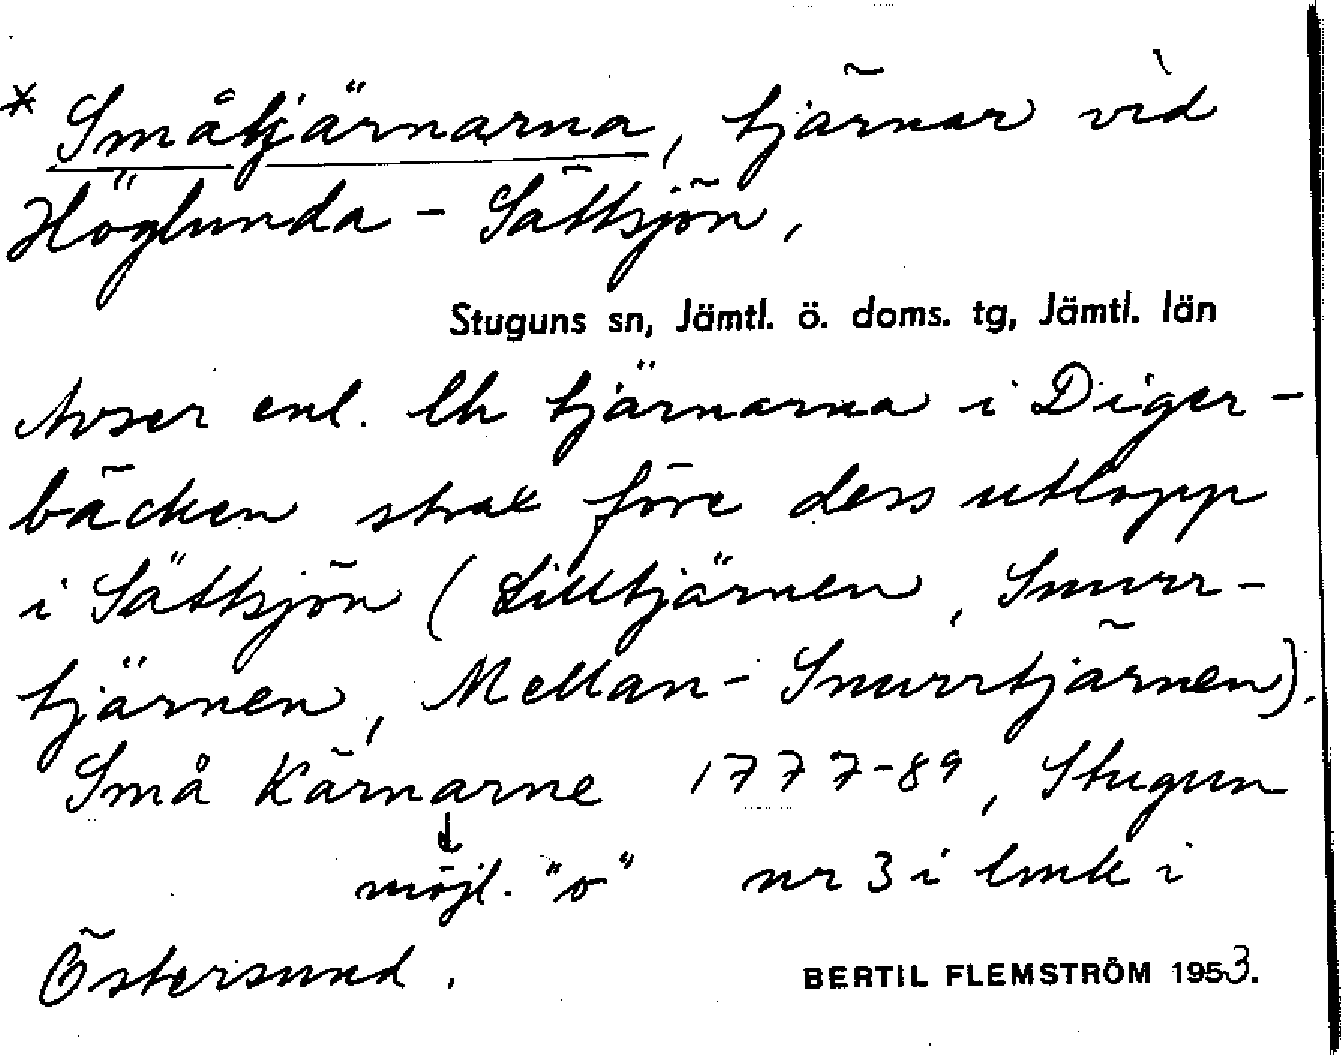 * Småtjärnarna, tjärnar vid
Höglunda - Sättsjön,
Stuguns sn, Jämtl. ö. doms. tg, Jämtl. län
Avser enl. Ch tjärnarna i Diger-
bäcken strax före dess utlopp
i Sättsjön (Lilltjärnen, Snurr-
tjärnen, Mellan-Snurrtjärnen).
Små Kärnarne 1777-89, Stugun
möjl. "o" nr 3 i lmk i
Östersund.
BERTIL FLEMSTRÖM 1953.